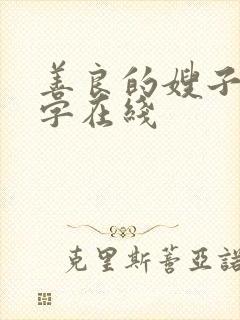 善良的嫂子
字在线
克里斯蒂亚諾